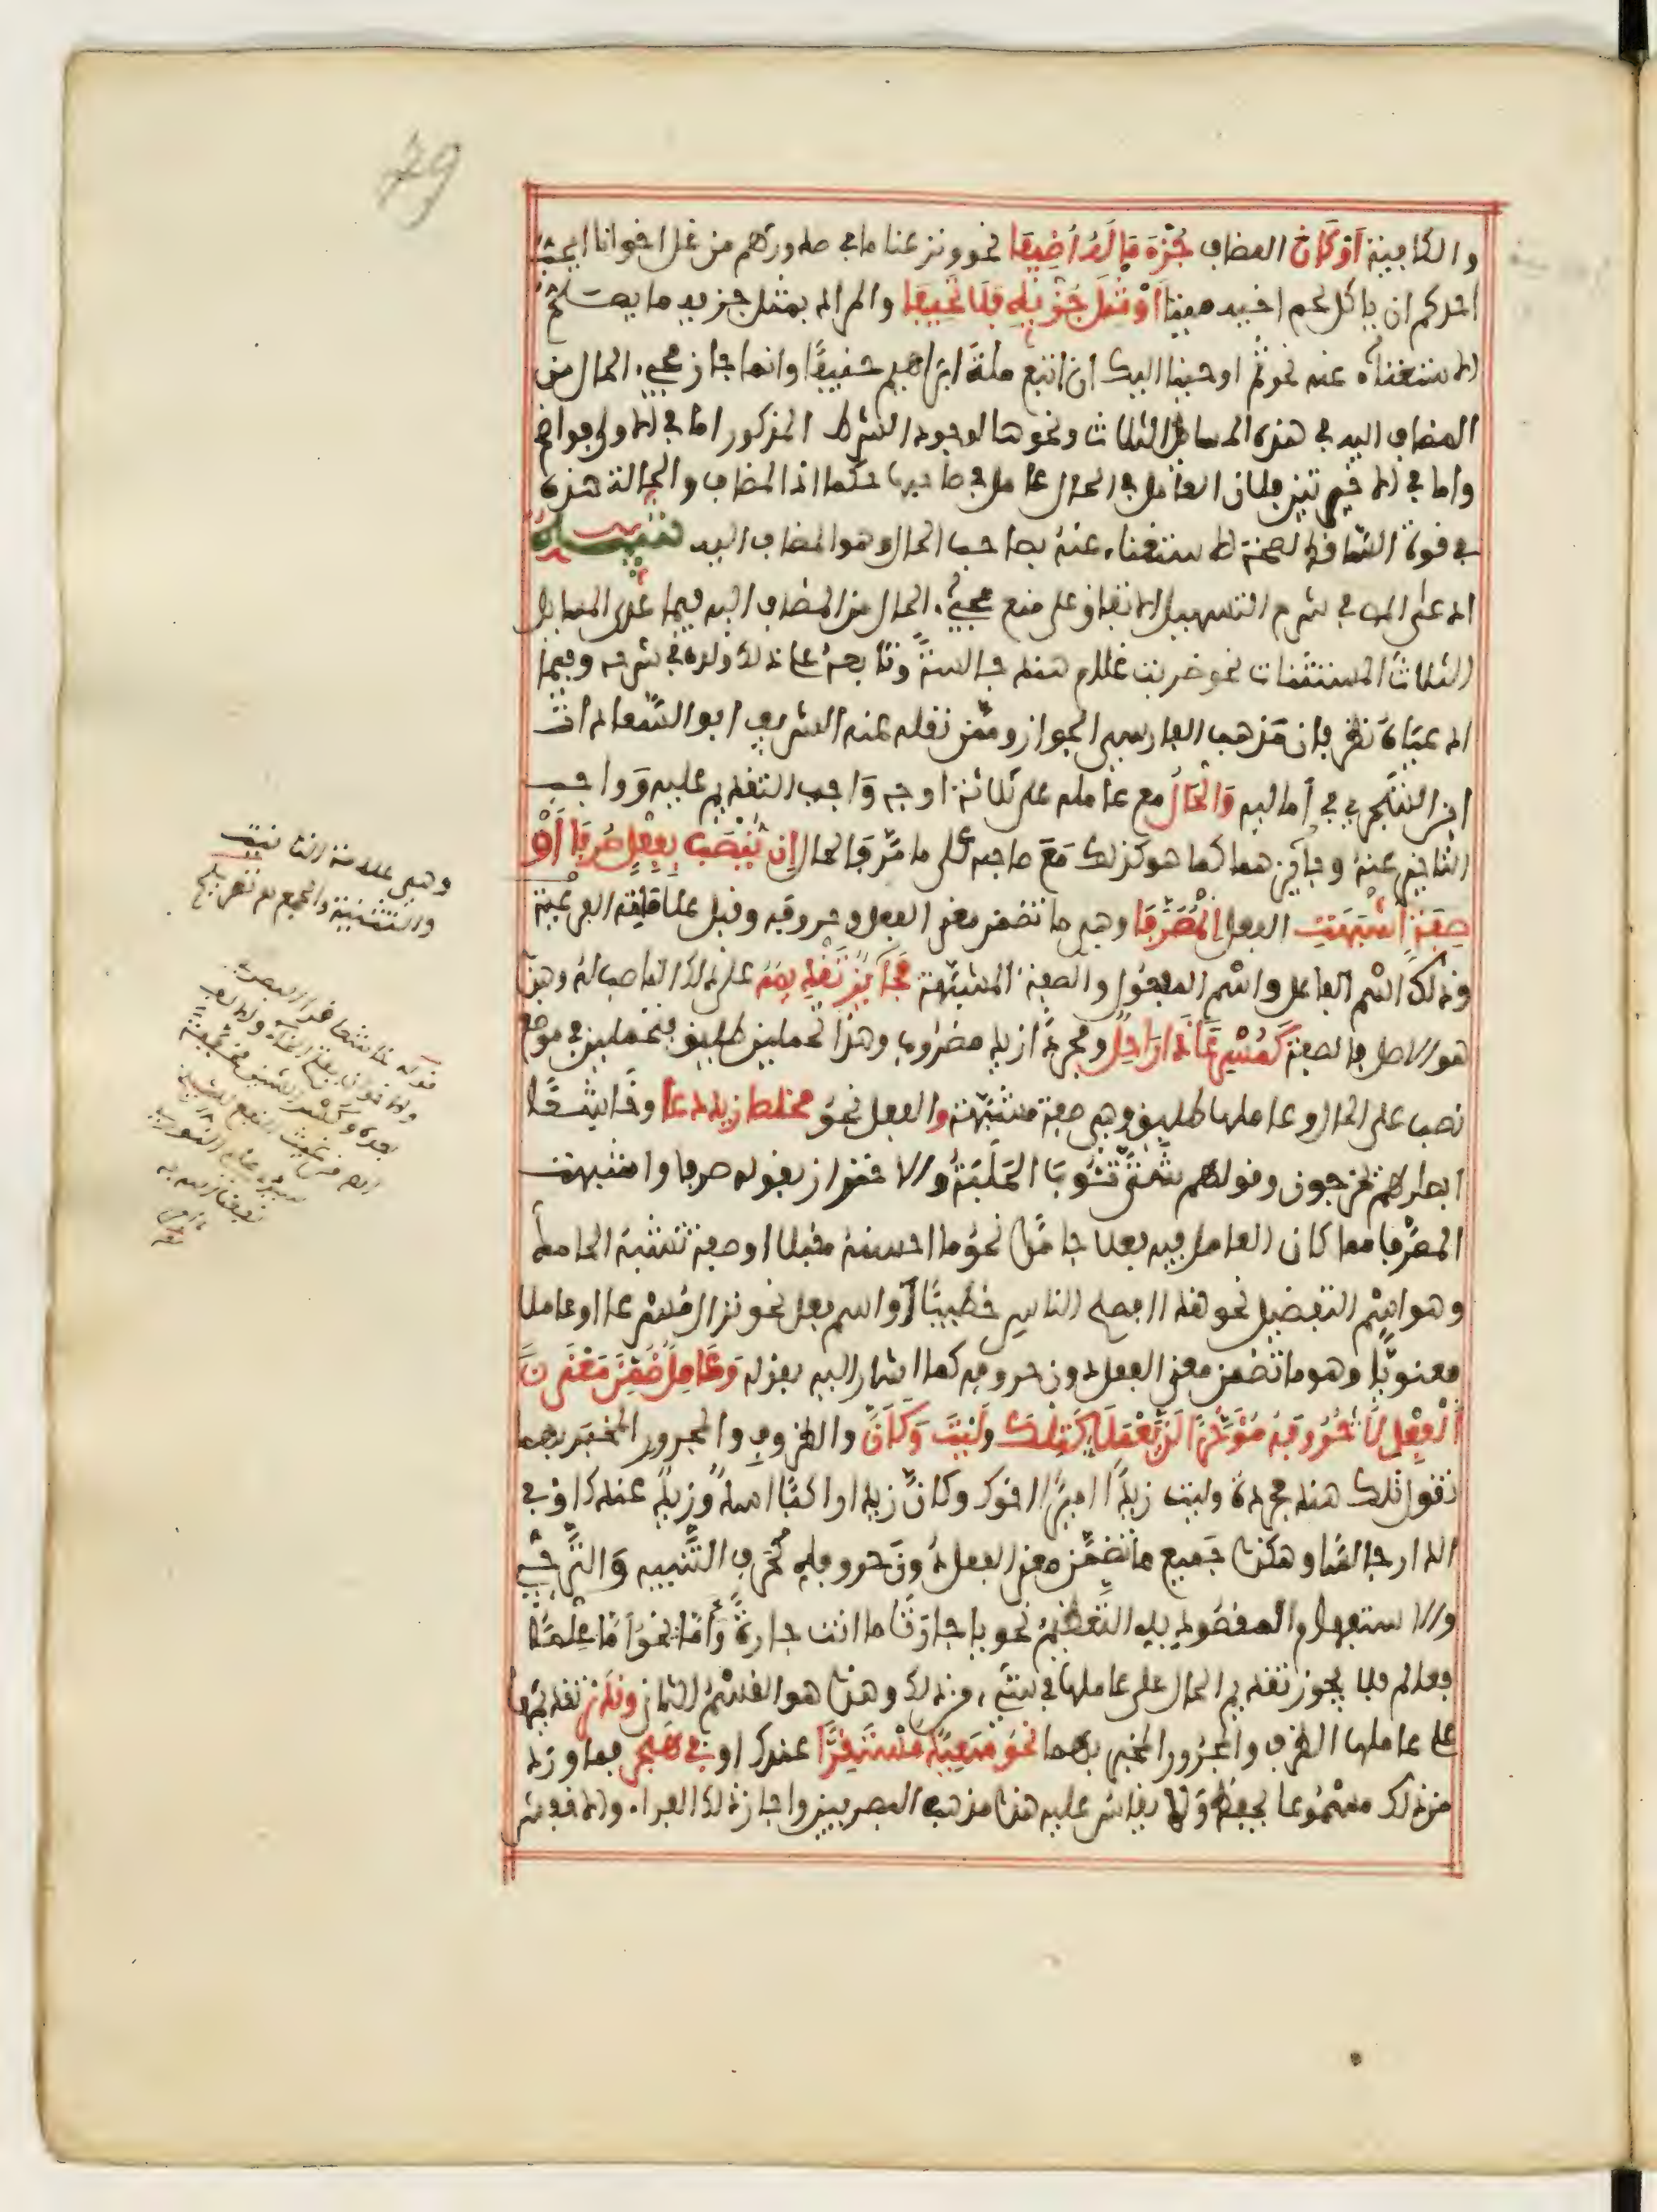 79
والكافيتة أَوْ كَانَ المضاف جُزْءَ مَا لَهُ أُضِيفَا نحو ونزعنا ما في صدورهم من غل اخوانا ايحب
احدكم ان ياكل لحم اخيه ميتا أَوْ مِثْلَ جُزْئِهِ فَلَا تَحِيفَا والمراد بمثل جزءيه ما يصح
الاستغناء عنه نحو ثم اوحينا اليك ان اتبع ملة ابراهيم حنيفا وانما جاز مجيء الحال من
المضاف اليه في هذه المسائل الثلاث ونحوها لوجود الشرط المذكور اما في الاولى فواضح
واما في الاخيرتين فلان العامل في الحال عامل في صاحبها حكما اذ المضاف والحالة هذه
في قوة الساقط لصحة الاستغناء عنه بصاحب الحال وهو المضاف اليه تنبيه
ادعى المص في شرح التسهيل الاتفاق على منع مجيء الحال من المضاف اليه فيما عدى المسائل
الثلاث المستثنات نحو ضربت غلام هند جالسة وتابعه على ذلك ولده في شرحه وفيما
ادعياه نظر فان مذهب الفارسي الجواز وممن نقله عنه الشريف ابو السعادات
ابن الشجري في أماليه وَالْحَالُ مع عامله على ثلاثة اوجه واجب التقديم عليه وواجب
التاخير عنه وجائزهما كما هو كذلك مع صاحبه على ما مر فالحال إِنْ يُنْصَبْ بِفِعْلٍ صُرِّفَا أَوْ
صِفَةٍ أَشْبَهَتِ الفعل الْمُصَرَّفَا وهي ما تضمن معنى الفعل وحروفه وقبل علاماته الفرعية
وذلك اسم الفاعل واسم المفعول والصفة المشبهة فَجَائِزٌ تَقْدِيمُهُ على ذلك الناصب له وهذا
هو الاصل فالصفة كَمُسْرِعًا ذَا رَاحِلٌ ومجردا زيد مضروب وهذا تحملين طليق فتحملين في موضع
نصب على الحال وعاملها طليق وهي صفة مشبهة والفعل نحو مخلصا زيد دعا وخاشعا
ابصارهم يخرجون وقولهم شتى تئوب الحلبة والاحتراز بقوله صرفا واشبهت
المصرفا مما كان العامل فيه فعلا جامدا نحو ما احسنه مقبلا او صفة تشبه الجامد
وهو اسم التفضيل نحو هذا افصح الناس خطيبا او اسم فعل نحو نزال مسرعا او عاملا
معنويا وهو ما تضمن معنى الفعل دون حروفه كما اشار اليه بقوله وَعَامِلٌ ضُمِّنَ مَعْنَى
الْفِعْلِ لَا حُرُوفَهُ مُؤَخَّرًا لَنْ يَعْمَلَا كَتِلْكَ وَلَيْتَ وَكَأَنَّ والظروف والمجرور المخبر بهما
تقول تلك هند مجردة وليت زيدا اميرا اخوك وكان زيدا راكبا اسد وزيد عندك او في
الدار جالسا وهكذا جميع ما تضمن معنى الفعل دون حروفه كحرف التنبيه والترجي
والاستفهام المقصود به التعظيم نحو يا جارتا ما انت جارة وأما نحو أما علما
فعالم فلا يجوز تقديم الحال على عاملها في شيء من ذلك وهذا هو القسم الثاني وَنَدَرْ تقديمها
على عاملها الظرف والمجرور المخبر بهما نَحْوُ سَعِيدٌ مُسْتَقِرًّا عندك او فِي هَجَرْ فما ورد
من ذلك مسموعا يحفظ ولا يقاس عليه هذا مذهب البصريين واجاز ذلك الفراء والاخفش
وهي علامة التانيث
والتثنية والجمع